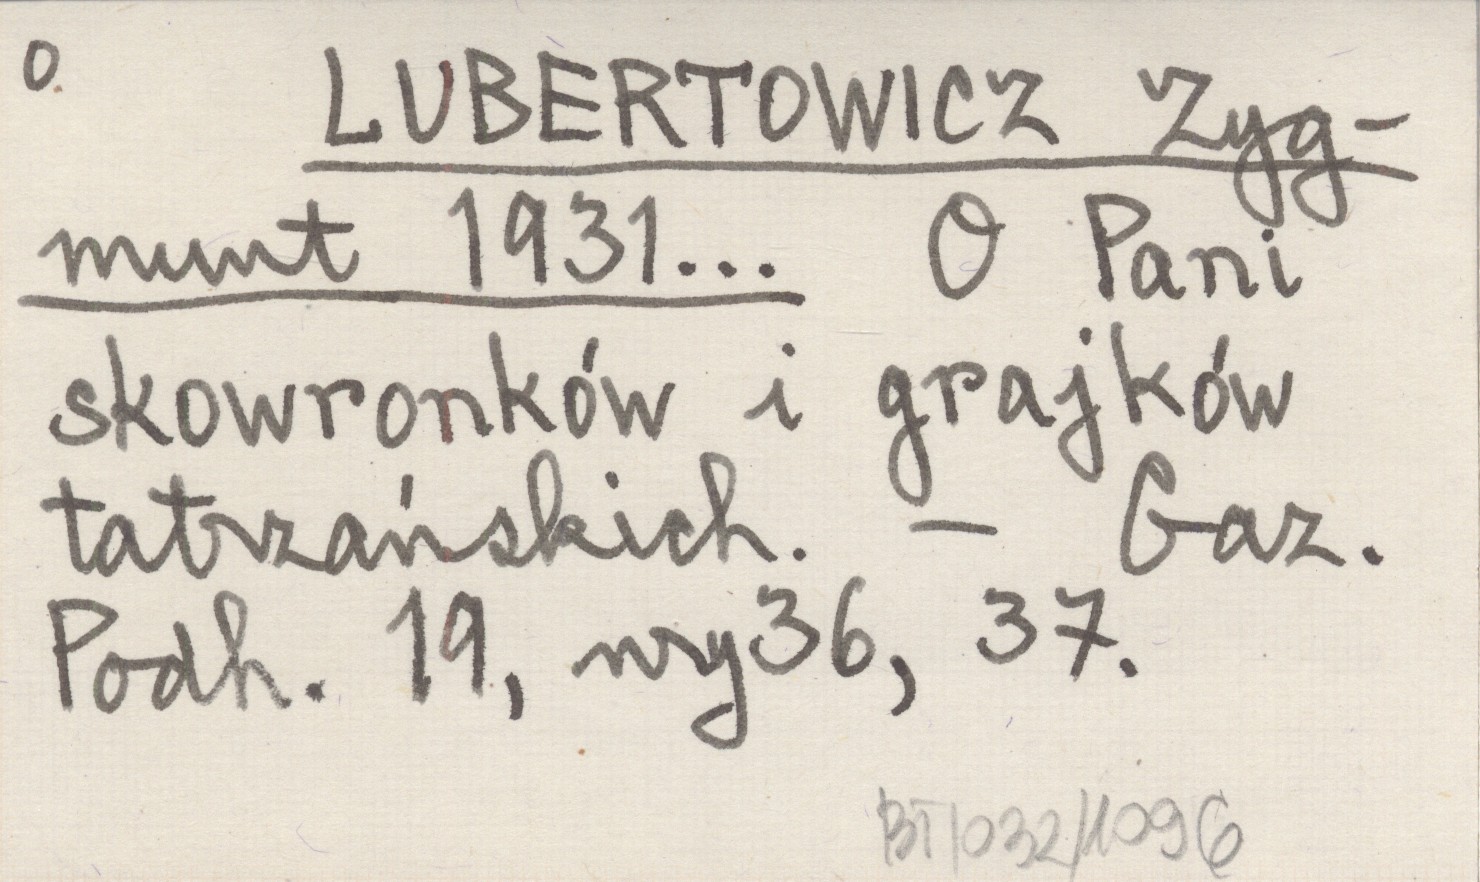 o.
LUBERTOWICZ Zyg-
munt 1931... O Pani
skowronków i grajków
tatrzańskich. — Gaz.
Podh. 19, nry 36, 37.
BT/032/1096